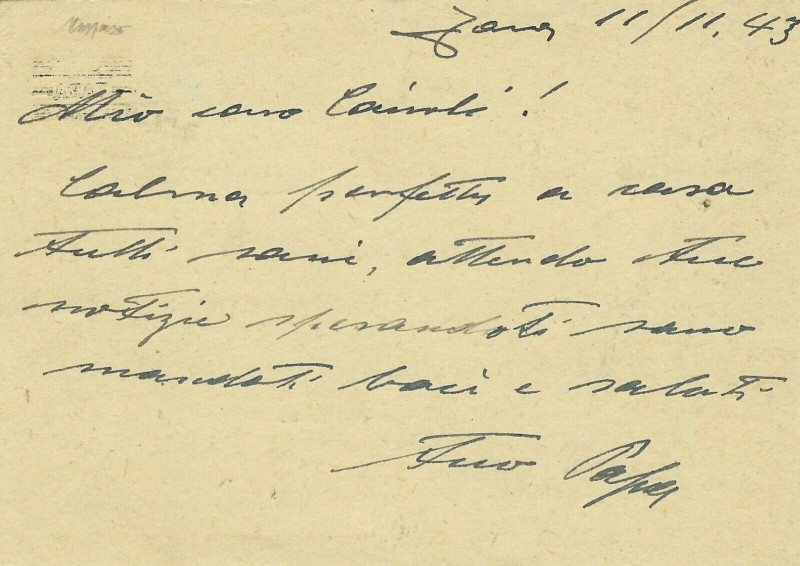 Zara 11/11.43
Mio caro Cairoli!
Calma perfetta a casa
tutti sani, attendo tue
notizie sperandoti sano
mandoti baci e saluti
tuo Papà